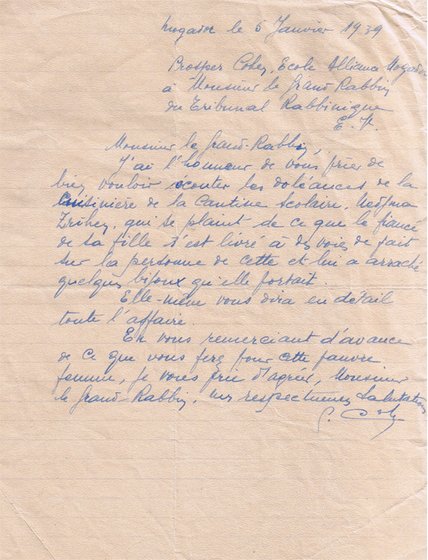 Mogador le 5 Janvier 1939
Prosper Cohen, Ecole Alliance Mogador
à Monsieur le Grand-Rabbin
du Tribunal Rabbinique
E. V.
Monsieur le Grand-Rabbin,
J'ai l'honneur de vous prier de
bien vouloir écouter les doléances de la
cuisinière de la Cantine Scolaire,
qui se plaint de ce que le fiancé
de sa fille s'est livré à des voies de fait
sur la personne de cette et lui a arraché
quelques bijoux qu'elle portait.
Elle-même vous dira en détail
toute l'affaire.
En vous remerciant d'avance
de ce que vous ferez pour cette pauvre
femme, je vous prie d'agréer, Monsieur
le Grand-Rabbin, mes respectueuses salutations